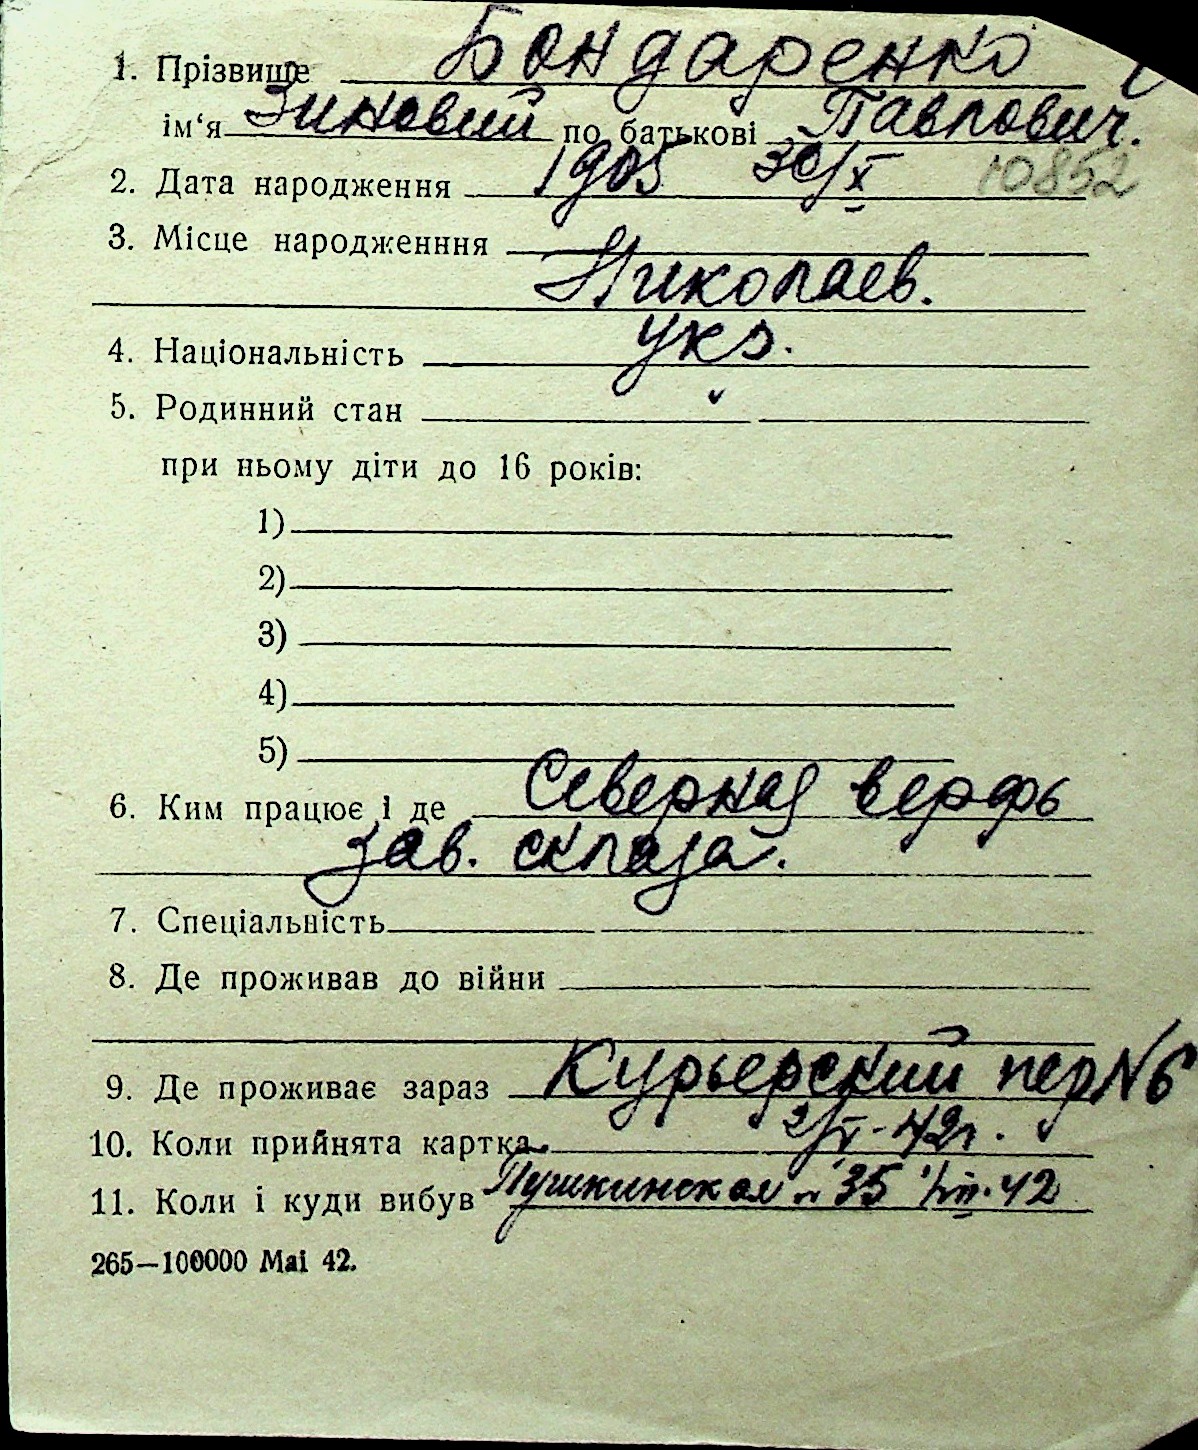 1. Прізвище Бондаренко
ім‘я Зиновий по батькові Павлович.
2. Дата народження 1905 30/X 10852
3. Місце народженння
Николаев.
4. Національність укр.
5. Родинний стан
при ньому діти до 16 років:
1)
2)
3)
4)
5)
6. Ким працює і де Северная верфь
зав. склада.
7. Спеціальність
8. Де проживав до війни
9. Де проживає зараз Курьерский пер N6
10. Коли прийнята картка 42г.
11. Коли і куди вибув Пушкинская 35 1/VIII.42
265—100000 Mai 42.